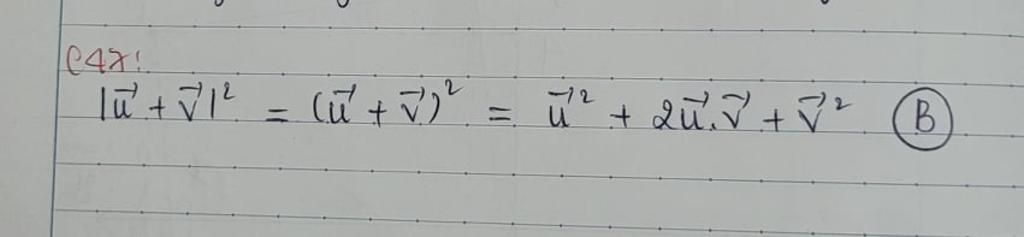 C47:
|u⃗ + v⃗|² = (u⃗ + v⃗)² = u⃗² + 2u⃗.v⃗ + v⃗² (B)